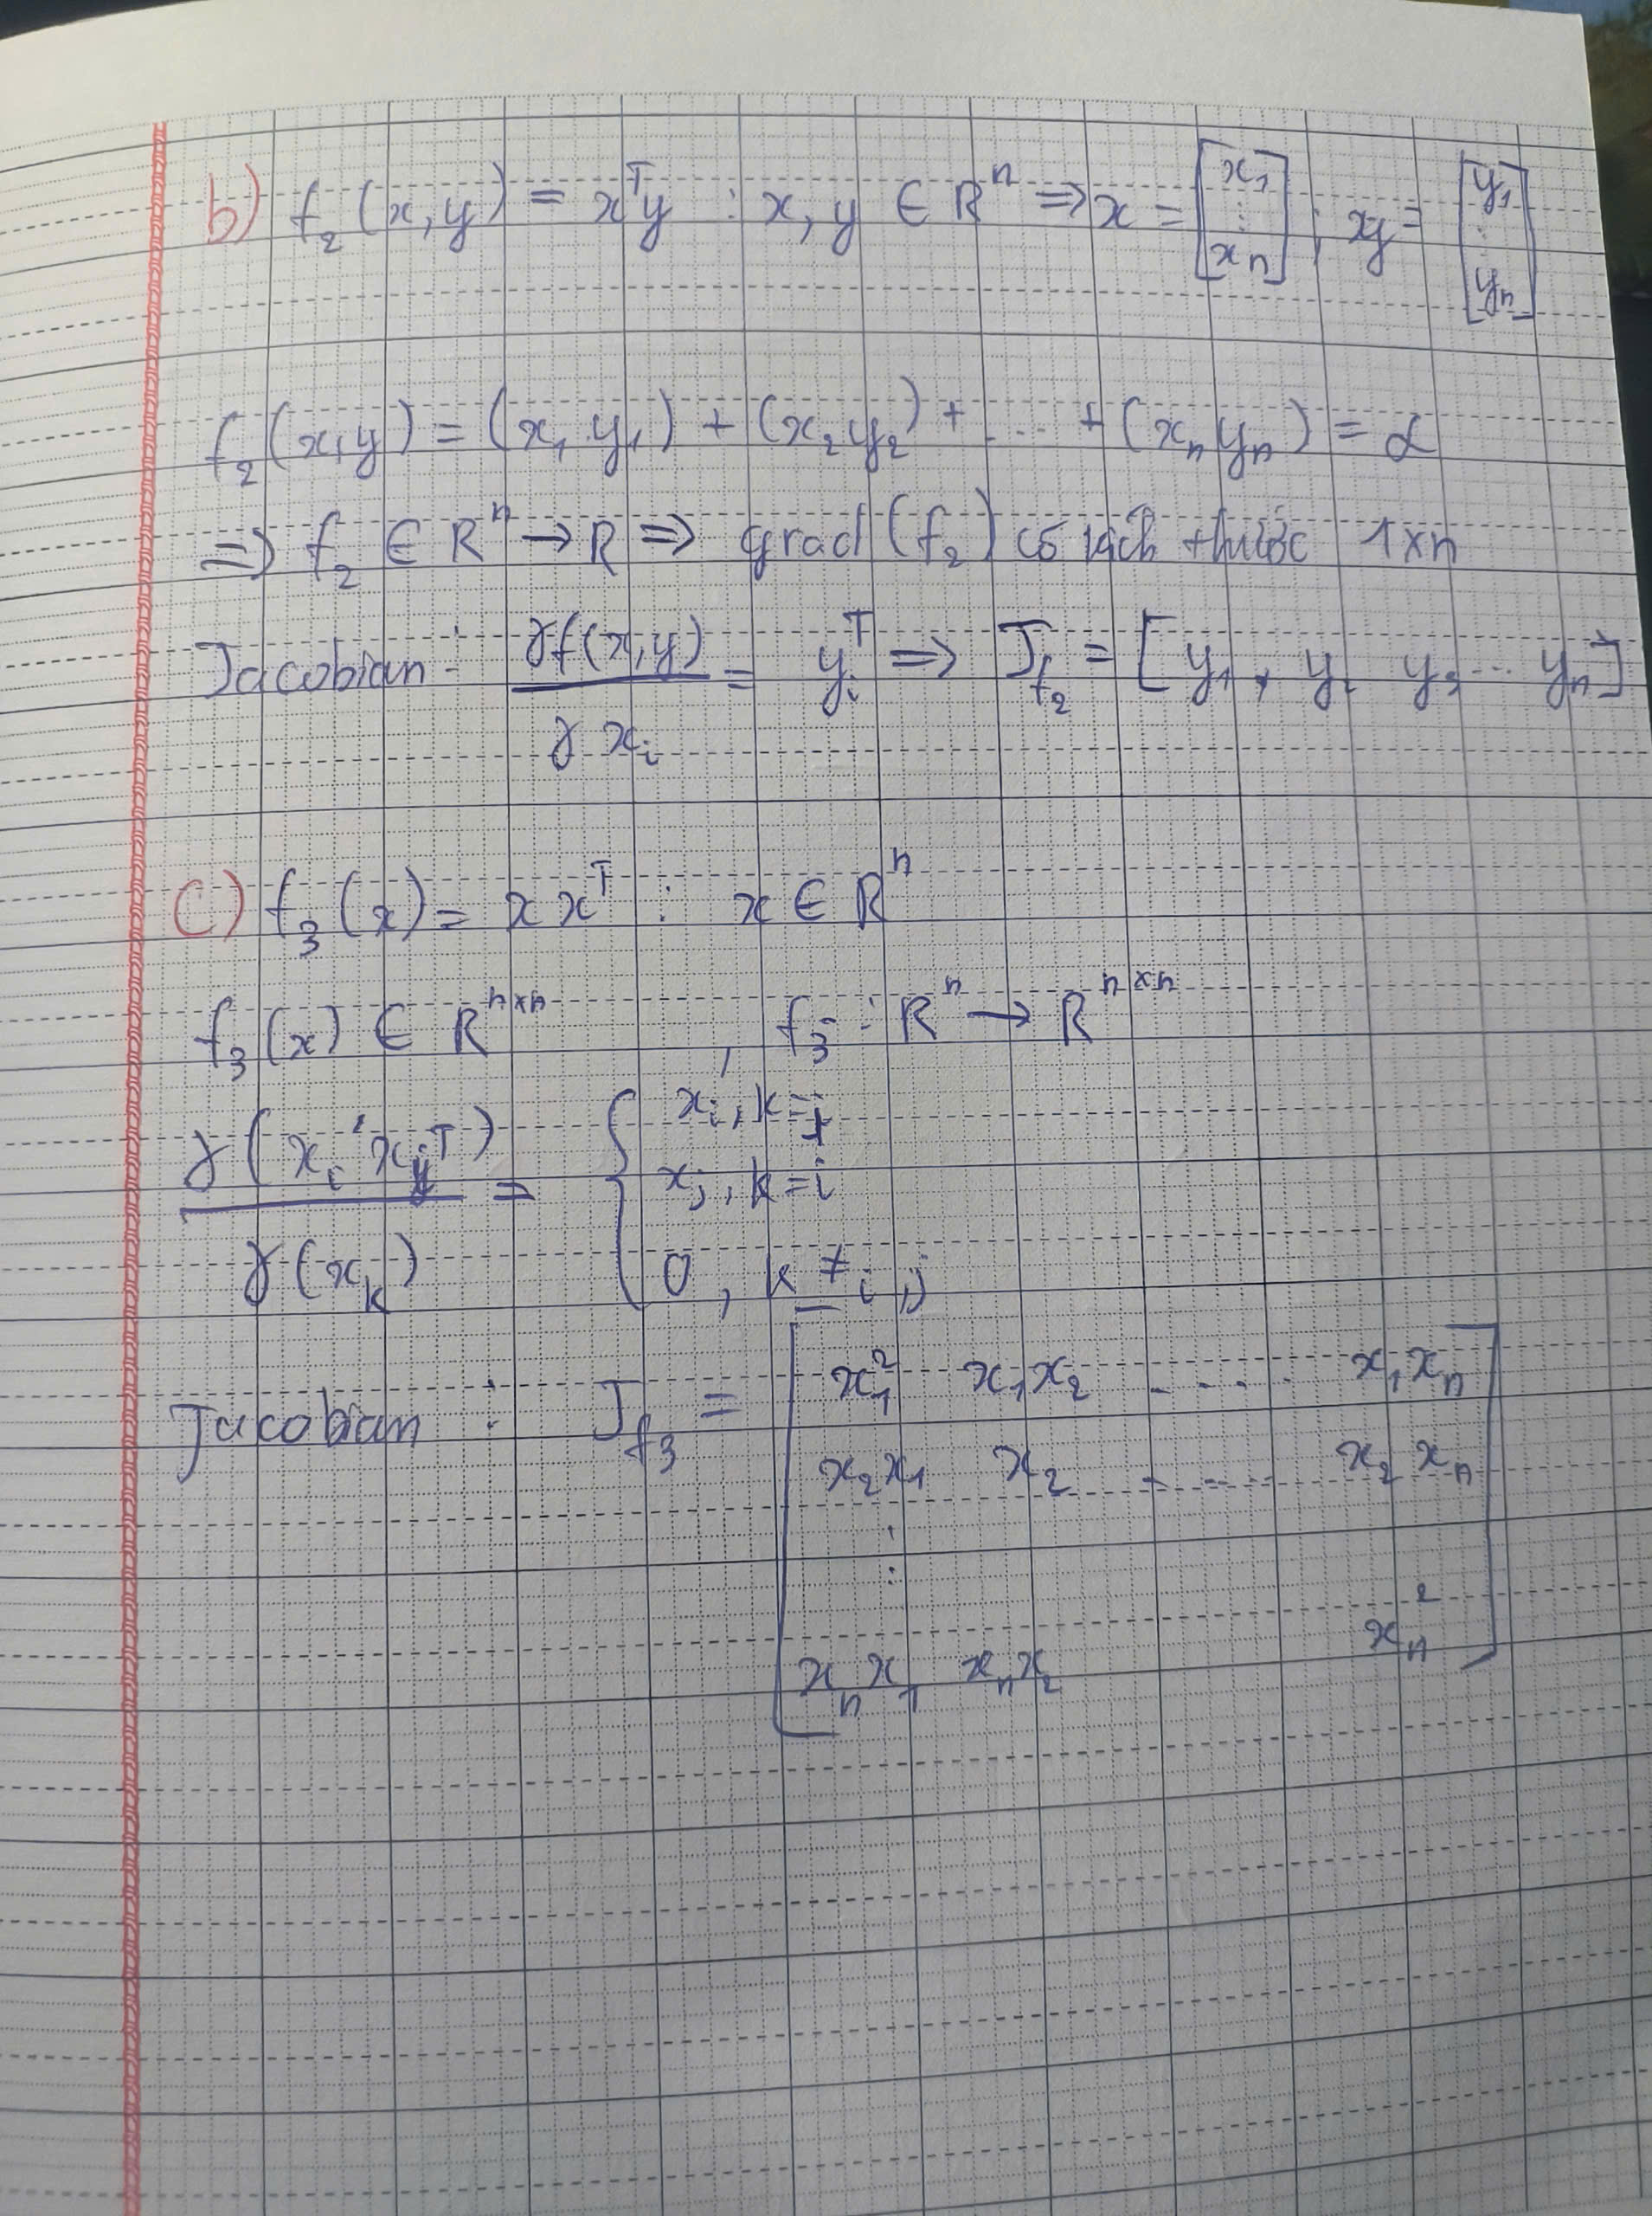 b) f₂(x,y) = xᵀy : x, y ∈ Rⁿ ⇒ x = [x₁ ⋮ xₙ] ; xy = [y₁ ⋮ yₙ]
f₂(x,y) = (x₁.y₁) + (x₂y₂) + .... + (xₙyₙ) = α
⇒ f₂ ∈ Rⁿ → R ⇒ grad(f₂) có kích thước 1×n
Jacobian : γf(x,y) / γxᵢ = yᵢᵀ ⇒ J_f₂ = [y₁, y₂ y₃ ... yₙ]
c) f₃(x) = x xᵀ : x ∈ Rⁿ
f₃(x) ∈ Rⁿˣⁿ , f₃ : Rⁿ → Rⁿˣⁿ
γ(xᵢ . xⱼᵀ) / γ(xₖ) = { xᵢ, k = j
xⱼ, k = i
0, k ≠ i, j
Jacobian : J_f₃ = [ x₁² x₁x₂ ..... x₁xₙ
x₂x₁ x₂ ..... x₂xₙ
⋮
xₙx₁ xₙx₂ xₙ² ]